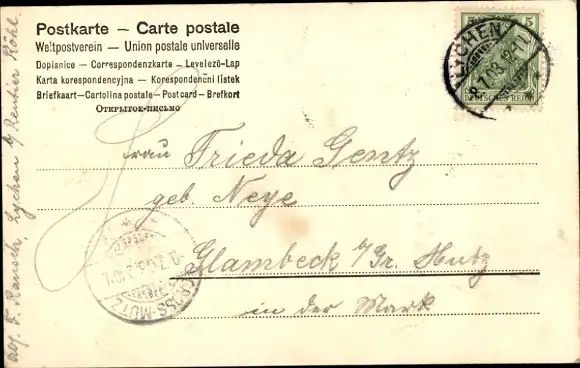 Postkarte — Carte postale
Weltpostverein — Union postale universelle
Dopisnice — Correspondenzkarte — Levelező-Lap
Karta korespondencyjna — Korespondenčni listek
Briefkaart — Cartolina postale — Postcard — Brefkort
Открытое письмо
5 5
LYCHEN
DEUTSCHES REICH
Frau Frieda Gentz
geb Neye
Glambeck b/Gr. Mutz
in der Mark
GROSS-MUTZ
Abs. F. Rausch, Lychen b/ Rentier Röhl